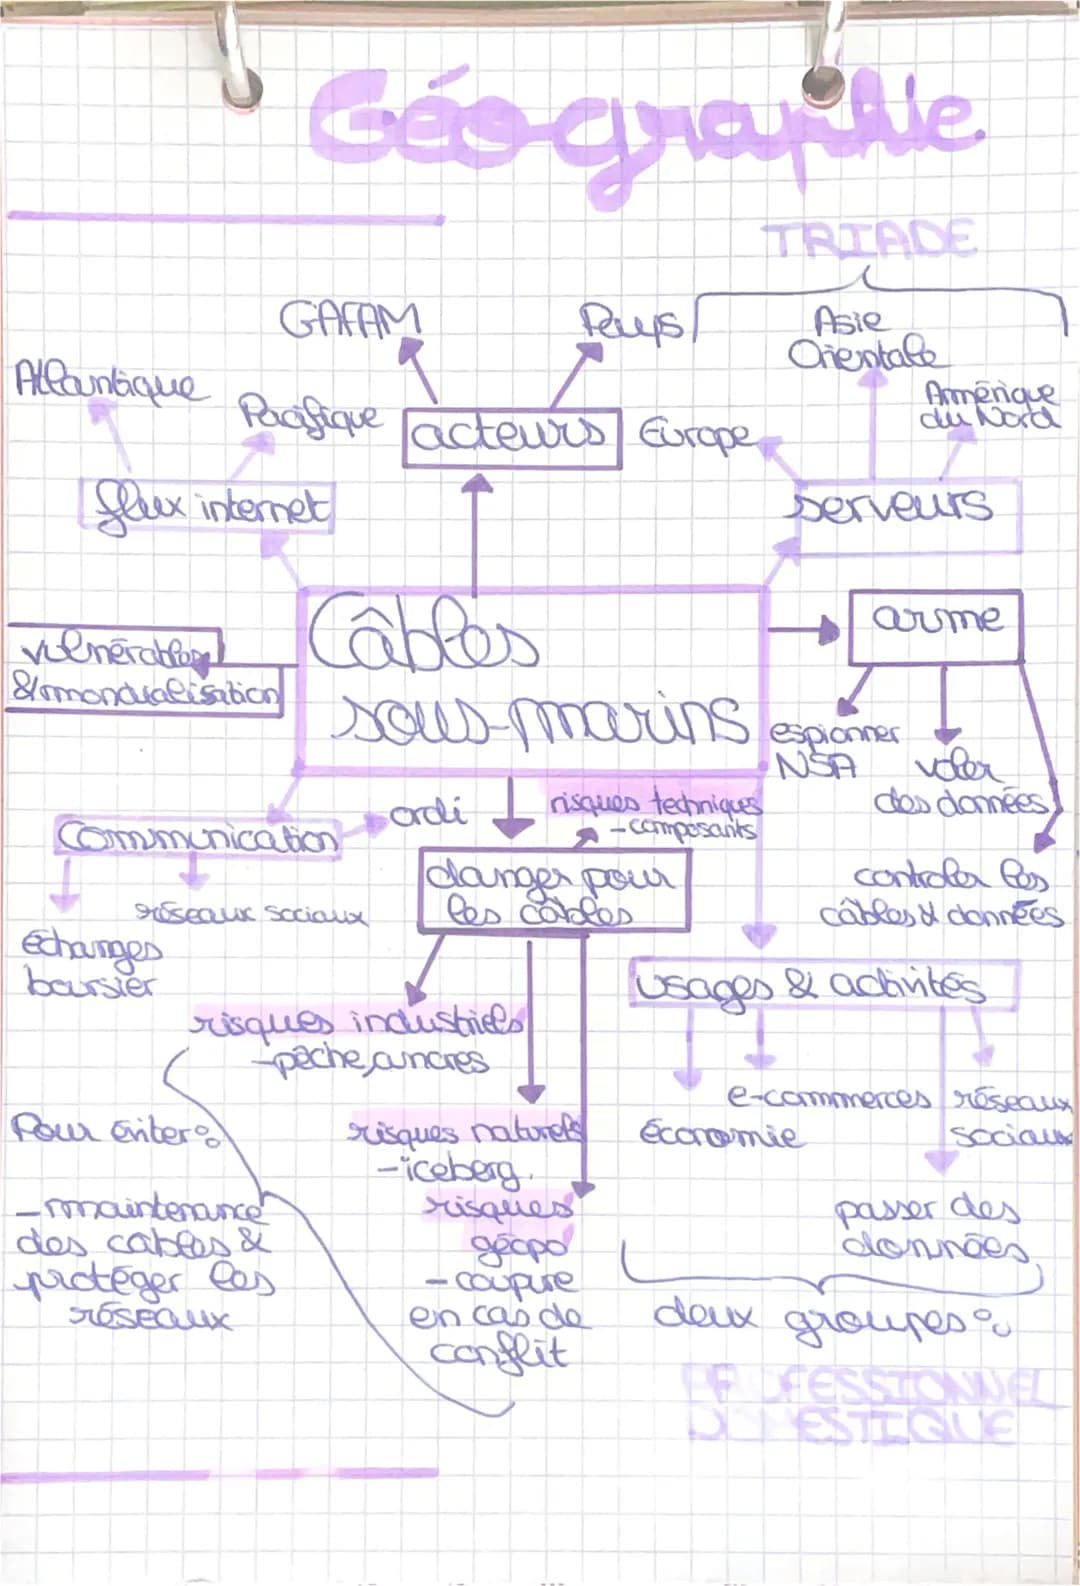 Géographie
TRIADE
GAFAM
Pays
Asie
Orientale
Atlantique
Pacifique
acteurs
Europe
Amérique
du Nord
flux internet
serveurs
Câbles
sous-marins
arme
vulnérables
& mondialisation
espionner
NSA
voler
des données
ordi
risques techniques
- composants
Communication
danger pour
les câbles
controler les
câbles & données
réseaux sociaux
échanges
boursier
usages & activités
risques industriels
- pêche, ancres
e-commerces
réseaux
sociaux
économie
Pour éviter :
risques naturels
- iceberg
- maintenance
des cables &
protéger les
réseaux
risques
géopo
- coupure
en cas de
conflit
passer des
données
deux groupes :
PROFESSIONNEL
DOMESTIQUE